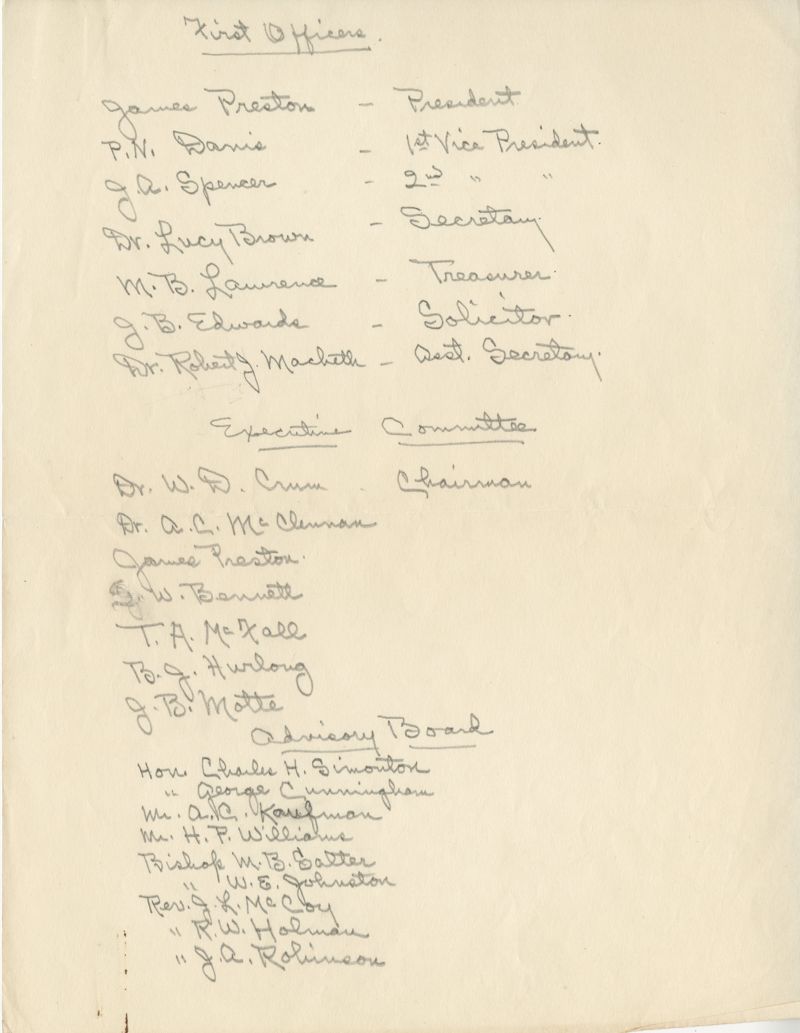 First Officers.
James Preston - President
P.N. Danis - 1st Vice President.
J.A. Spencer - 2nd " "
Dr. Lucy Brown - Secretary.
M. B. Lawrence - Treasurer.
J. B. Edwards - Solicitor.
Dr. Robert J. Macbeth - Asst. Secretary.
Executive Committee
Dr. W. D. Crum - Chairman
Dr. A. C. McClennan
James Preston.
W. Bennett
T. A. McFall
B. J. Hurlong
J. B. Motte
Advisory Board
Hon. Charles H. Simonton
" George Cunningham
Mr. A.C. Kaufman
Mr. H. P. Williams
Bishop M. B. Salter
" W. E. Johnston
Rev. J. L. McCoy
" R. W. Holman
" J. A. Robinson